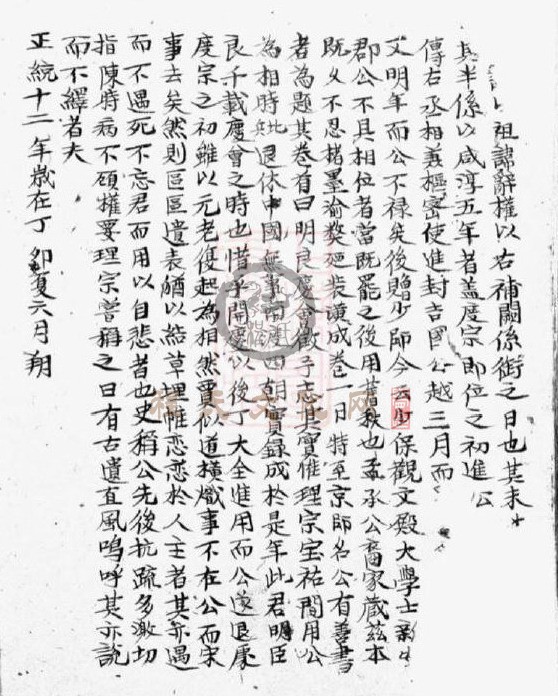 祖諱辭權以右補闕係銜之日也其未
其半係以咸淳五年者蓋度宗即位之初進公
傳右丞相兼樞密使進封吉國公越三月而
又明年而公不祿矣後贈少師今云少保觀文殿大學士
郡公不具相位者當既罷之後用舊秩也孟承公裔家藏茲本
既久不忍楮墨渝獘廼裝潢成卷一日特至京師名公有善書
者為題其卷首曰明良慶會徵予志其實惟理宗宝祐間用公
為相時 退休中國無事 四朝實錄成於是年此君明臣
良千載慶會之時也惜乎開慶以後丁大全進用而公遂退處
度宗之初雖以元老復起為相然賈似道橫熾事不在公而宋
事去矣然則區區遺表猶以結草埋帷恋恋於人主者其亦遇
而不遇死不忘君而用以自悲者也史稱公先後抗疏多激切
指陳時病不顧權要理宗嘗稱之曰有古遺直風嗚呼其亦說
而不繹者夫
正統十二年歲在丁卯夏六月朔